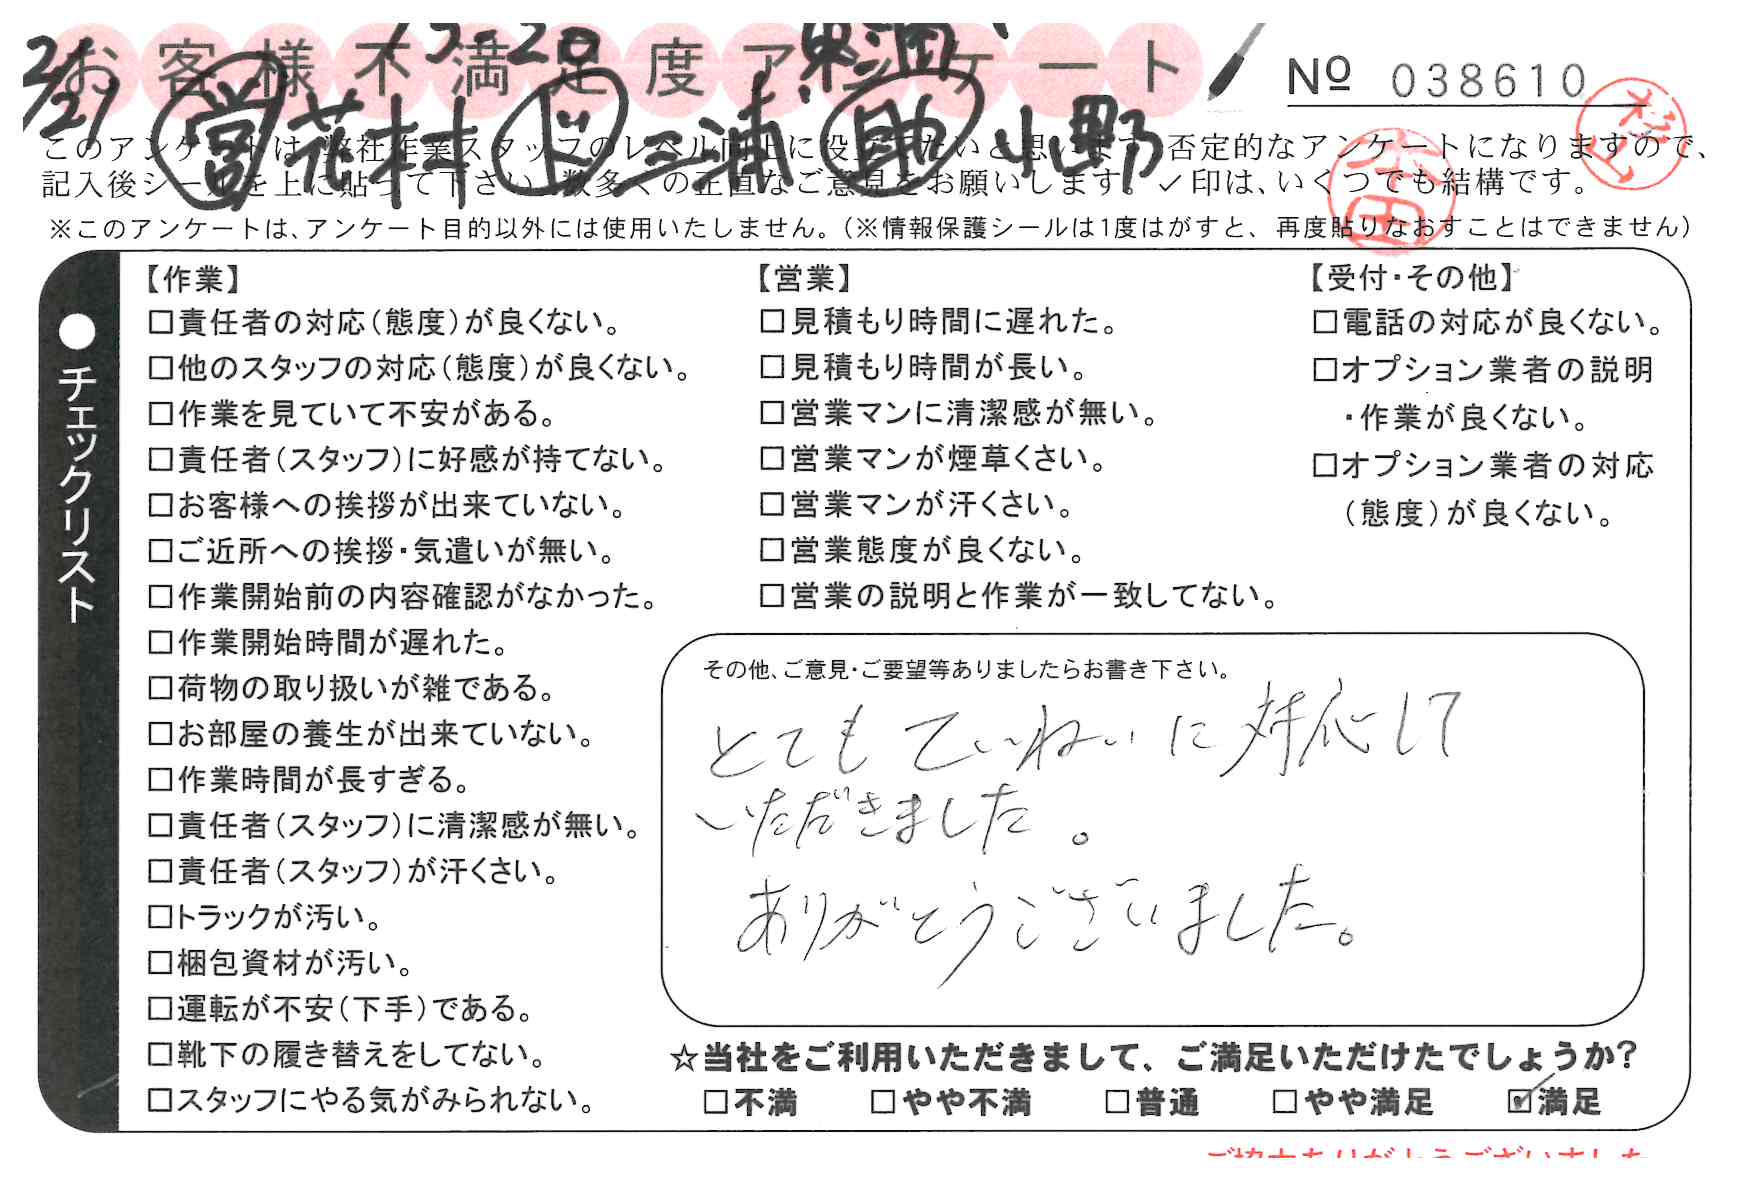 お客様不満足度アンケート
№ 038610
2/21
営 花村 ド 三浦 助 小野
このアンケートは、弊社作業スタッフのレベル向上に役立てたいと思います。否定的なアンケートになりますので、
記入後シールを上に貼って下さい。数多くの正直なご意見をお願いします。✓印は、いくつでも結構です。
※このアンケートは、アンケート目的以外には使用いたしません。（※情報保護シールは1度はがすと、再度貼りなおすことはできません）
●チェックリスト
【作業】
□責任者の対応（態度）が良くない。
□他のスタッフの対応（態度）が良くない。
□作業を見ていて不安がある。
□責任者（スタッフ）に好感が持てない。
□お客様への挨拶が出来ていない。
□ご近所への挨拶・気遣いが無い。
□作業開始前の内容確認がなかった。
□作業開始時間が遅れた。
□荷物の取り扱いが雑である。
□お部屋の養生が出来ていない。
□作業時間が長すぎる。
□責任者（スタッフ）に清潔感が無い。
□責任者（スタッフ）が汗くさい。
□トラックが汚い。
□梱包資材が汚い。
□運転が不安（下手）である。
□靴下の履き替えをしてない。
□スタッフにやる気がみられない。
【営業】
□見積もり時間に遅れた。
□見積もり時間が長い。
□営業マンに清潔感が無い。
□営業マンが煙草くさい。
□営業マンが汗くさい。
□営業態度が良くない。
□営業の説明と作業が一致してない。
【受付・その他】
□電話の対応が良くない。
□オプション業者の説明
・作業が良くない。
□オプション業者の対応
（態度）が良くない。
その他、ご意見・ご要望等ありましたらお書き下さい。
とてもていねいに対応して
いただきました。
ありがとうございました。
☆当社をご利用いただきまして、ご満足いただけたでしょうか?
□不満 □やや不満 □普通 □やや満足 ☑満足
ご協力ありがとうございました